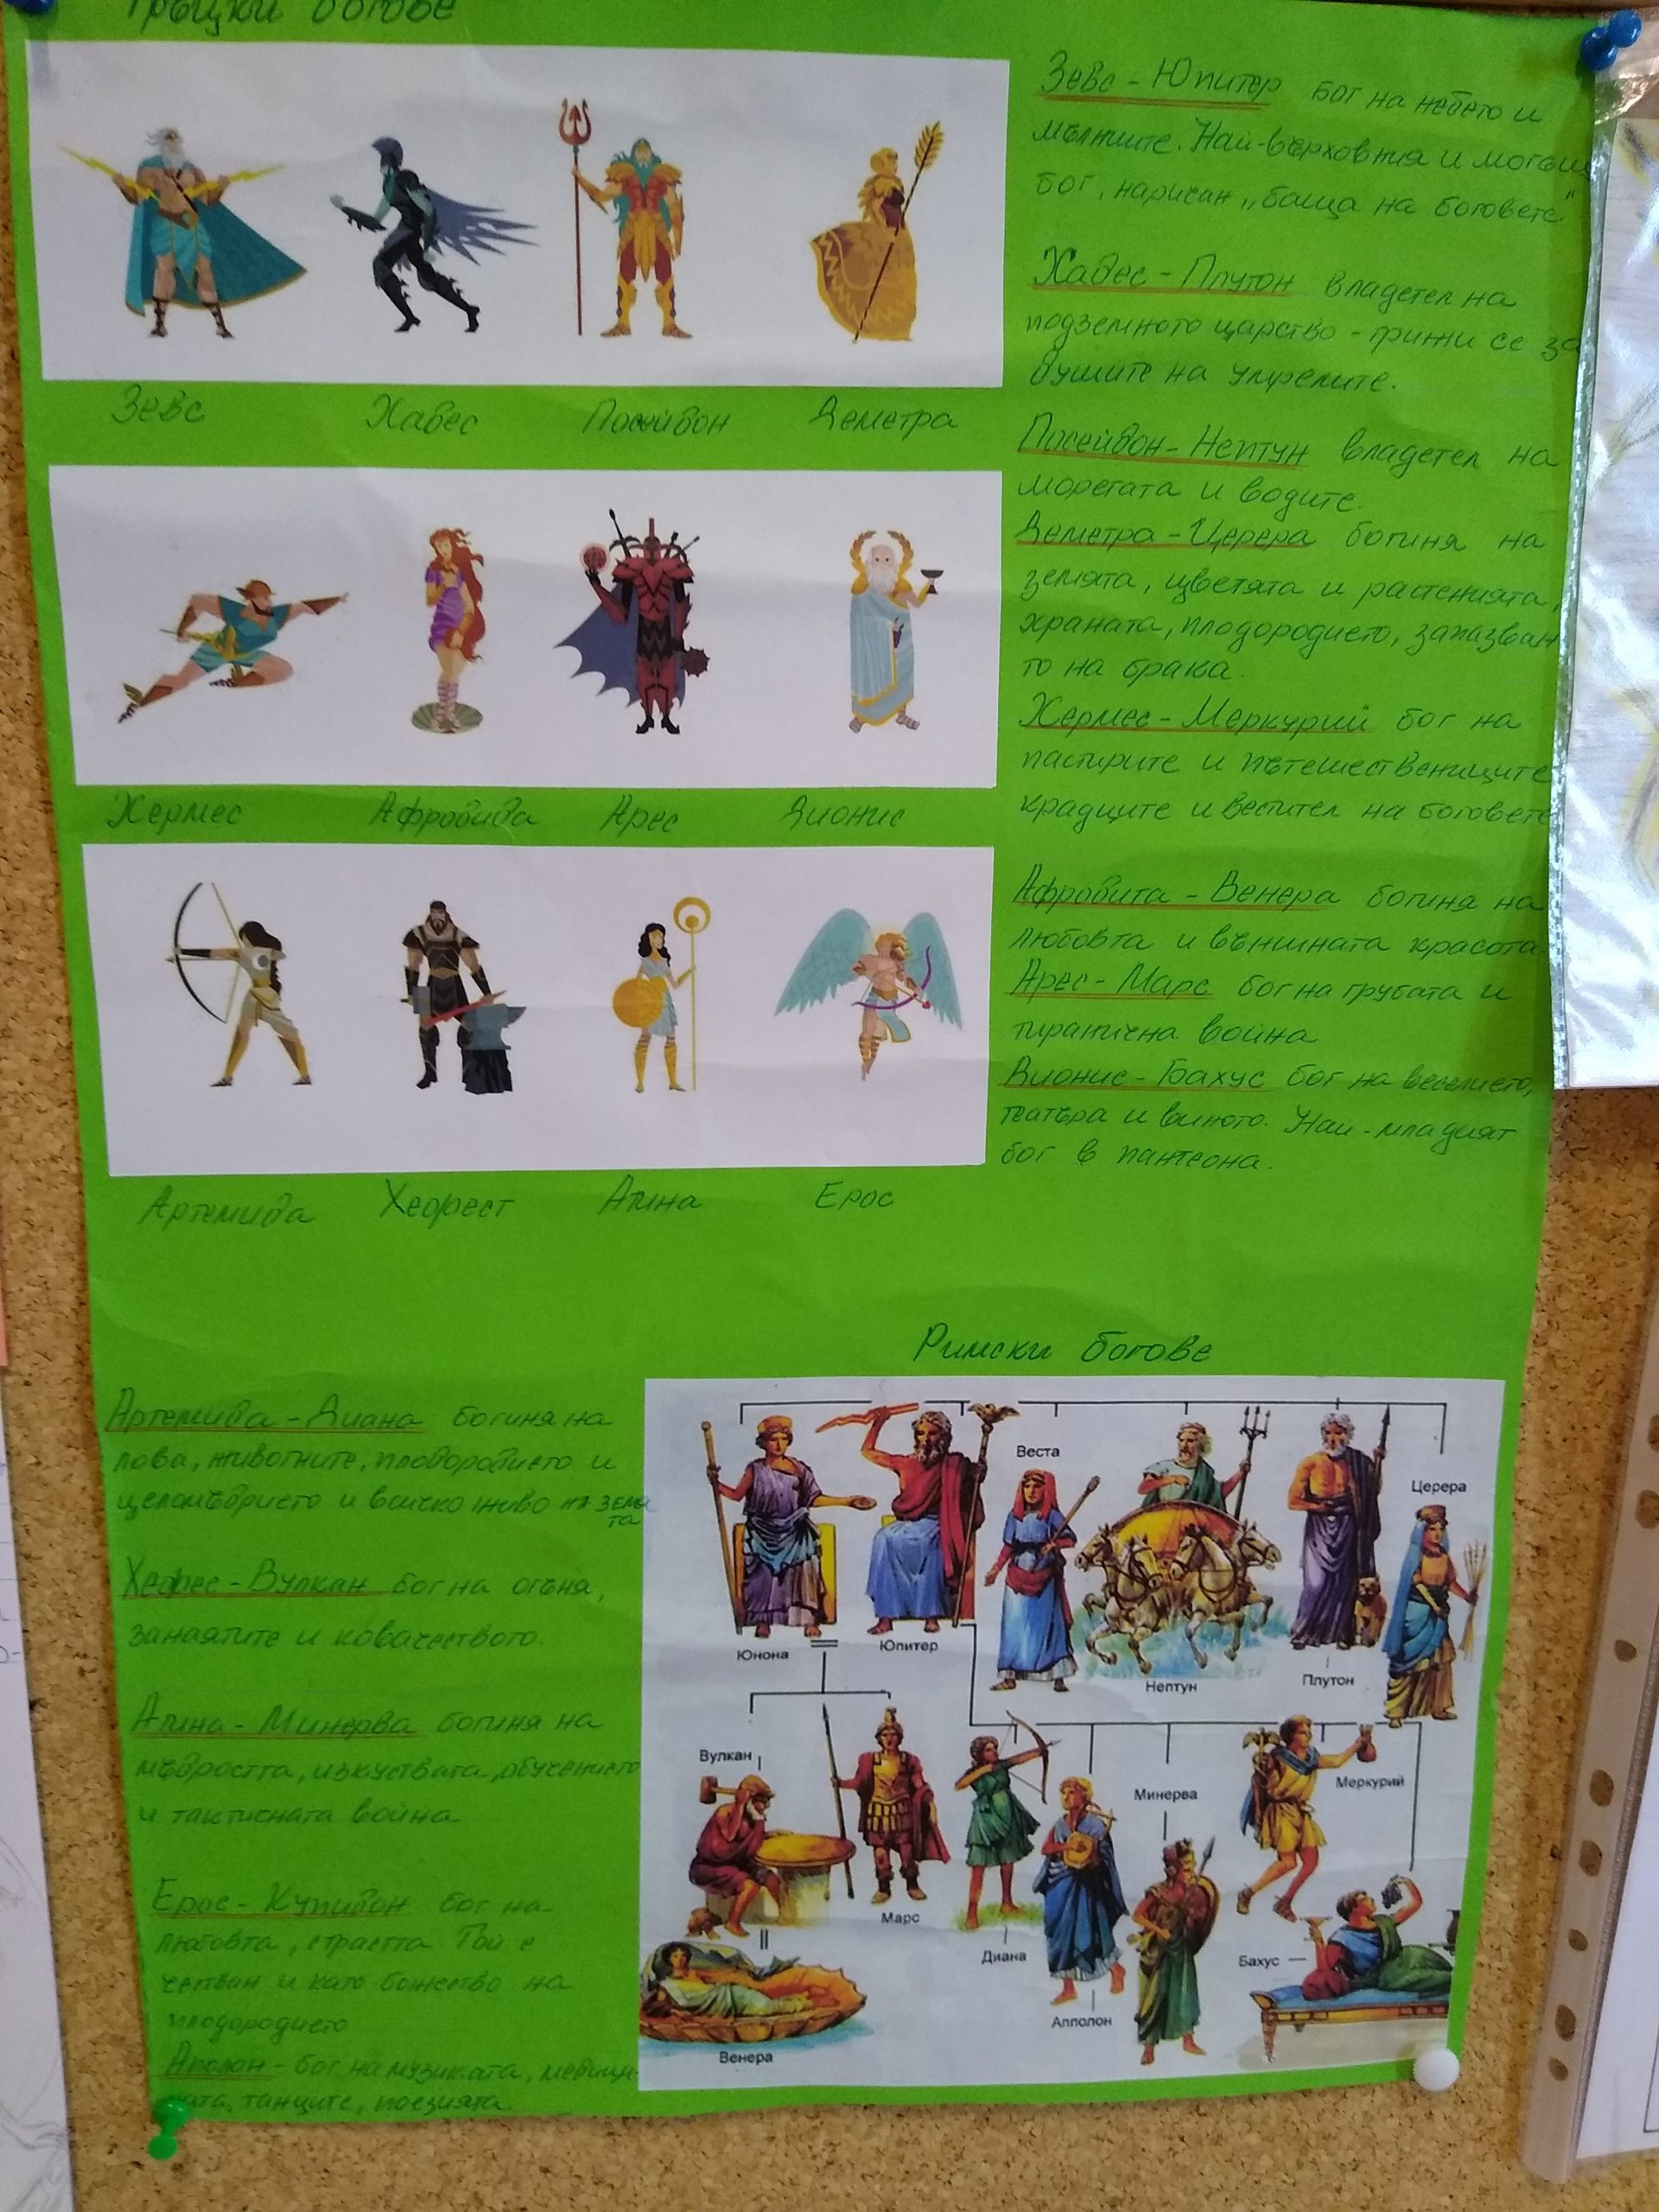 Гръцки богове
Зевс Хадес Посейдон Деметра
Хермес Афродида Арес Дионис
Артемида Хефест Атина Ерос
Зевс - Юпитер бог на небето и
мълниите. Най-върховния и могъщ
бог, наричан „баща на боговете"
Хадес - Плутон владетел на
подземното царство - грижи се за
душите на умрелите.
Посейдон - Нептун владетел на
моретата и водите.
Деметра - Церера богиня на
земята, цветята и растенията,
храната, плодородието, запазван
то на брака.
Хермес - Меркурий бог на
пастирите и пътешествениците
крадците и вестител на боговете
Афродита - Венера богиня на
любовта и външната красота.
Арес - Марс бог на грубата и
тиранична война
Дионис - Бахус бог на веселието,
театъра и виното. Най-младият
бог в пантеона.
Артемида - Диана богиня на
лова, животните, плодородието и
целомъдрието и всичко живо на земя
та
Хефес - Вулкан бог на огъня,
занаятите и ковачеството.
Атина - Минерва богиня на
мъдростта, изкуствата, обучението
и тактичната война
Ерос - Купидон бог на
любовта, страстта Той е
честван и като божество на
плодородието
Аполон - бог на музиката, медици
ната, танците, поезията.
Римски богове
Веста
Церера
Юнона
Юпитер
Нептун
Плутон
Вулкан
Марс
Диана
Минерва
Меркурий
Апполон
Бахус
Венера